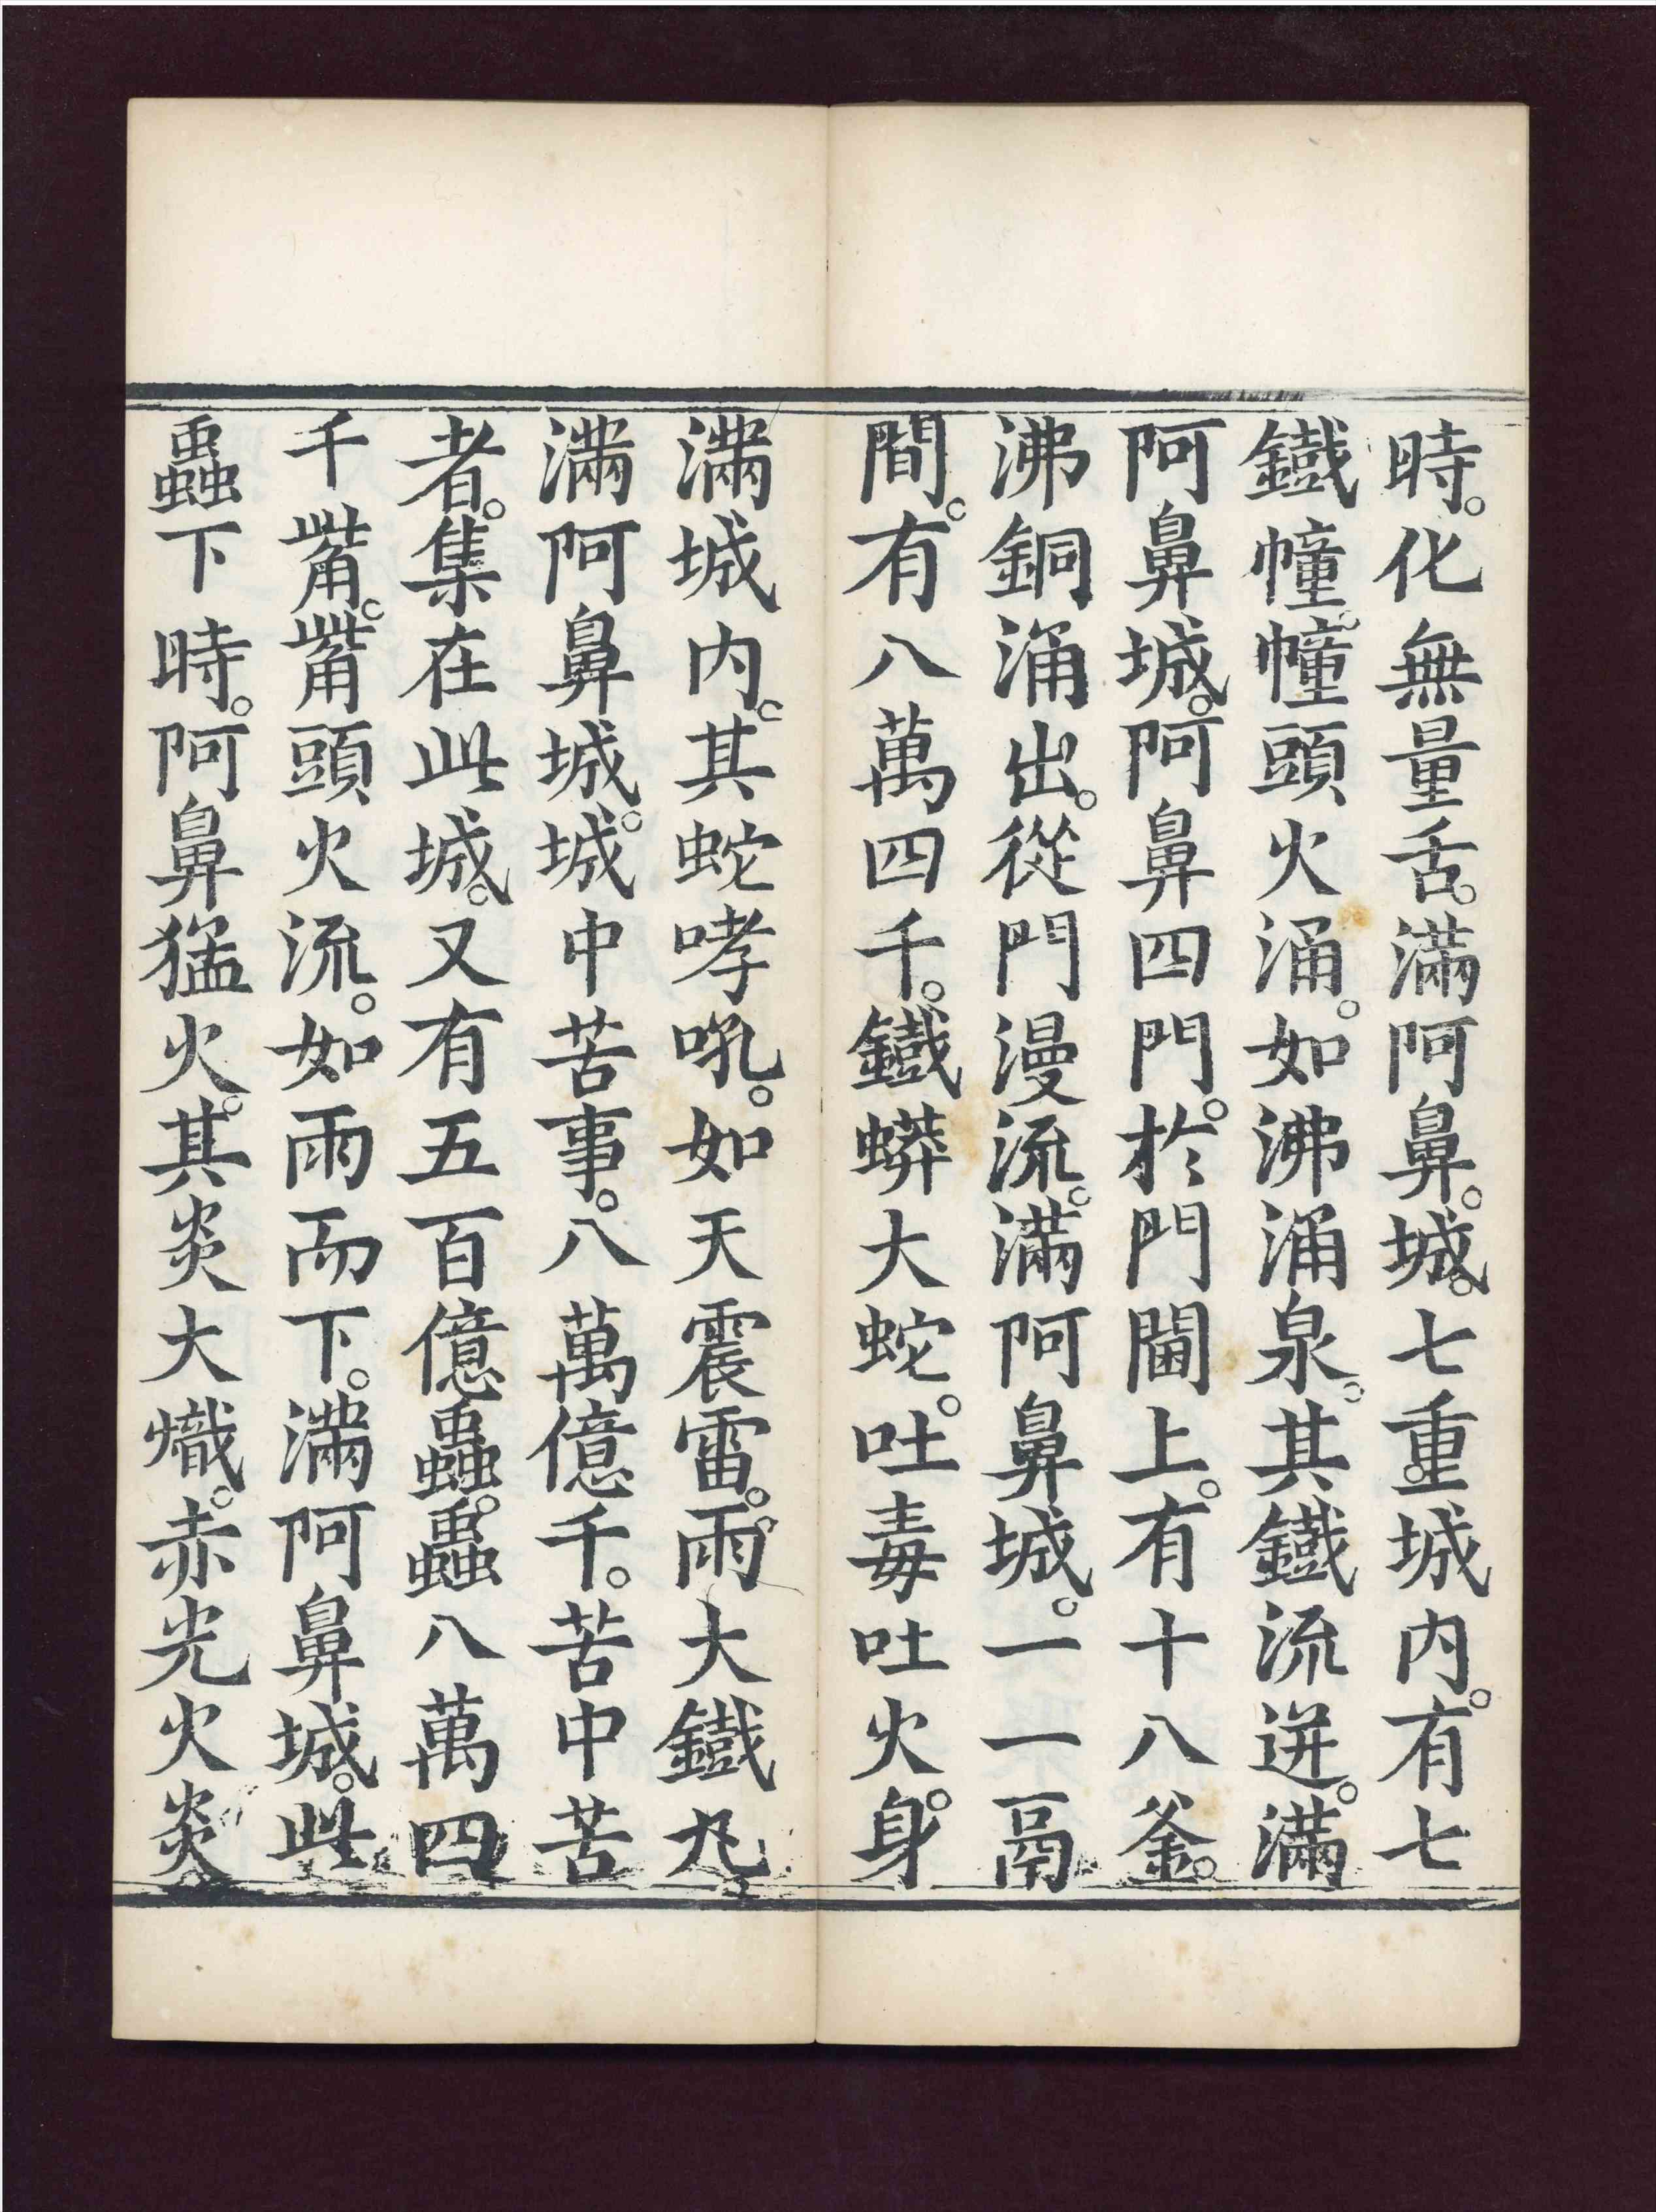 時。化無量舌。滿阿鼻。城。七重。城内。有七
鐵幢。幢頭火涌。如沸涌泉。其鐵流迸。滿
阿鼻城。阿鼻四門。於門閫上。有十八釜。
沸銅涌出。從門漫流。滿阿鼻城。一一鬲
間。有八萬四千。鐵蟒大蛇。吐毒吐火。身
滿城内。其蛇哮吼。如天震雷。雨。大鐵丸。
滿阿鼻城。城中苦事。八萬億千。苦中苦
者。集在此城。又有五百億蟲。蟲八萬四
千觜。觜頭火流。如雨而下。滿阿鼻城。此
蟲下時。阿鼻猛火。其炎大熾。赤光火炎。